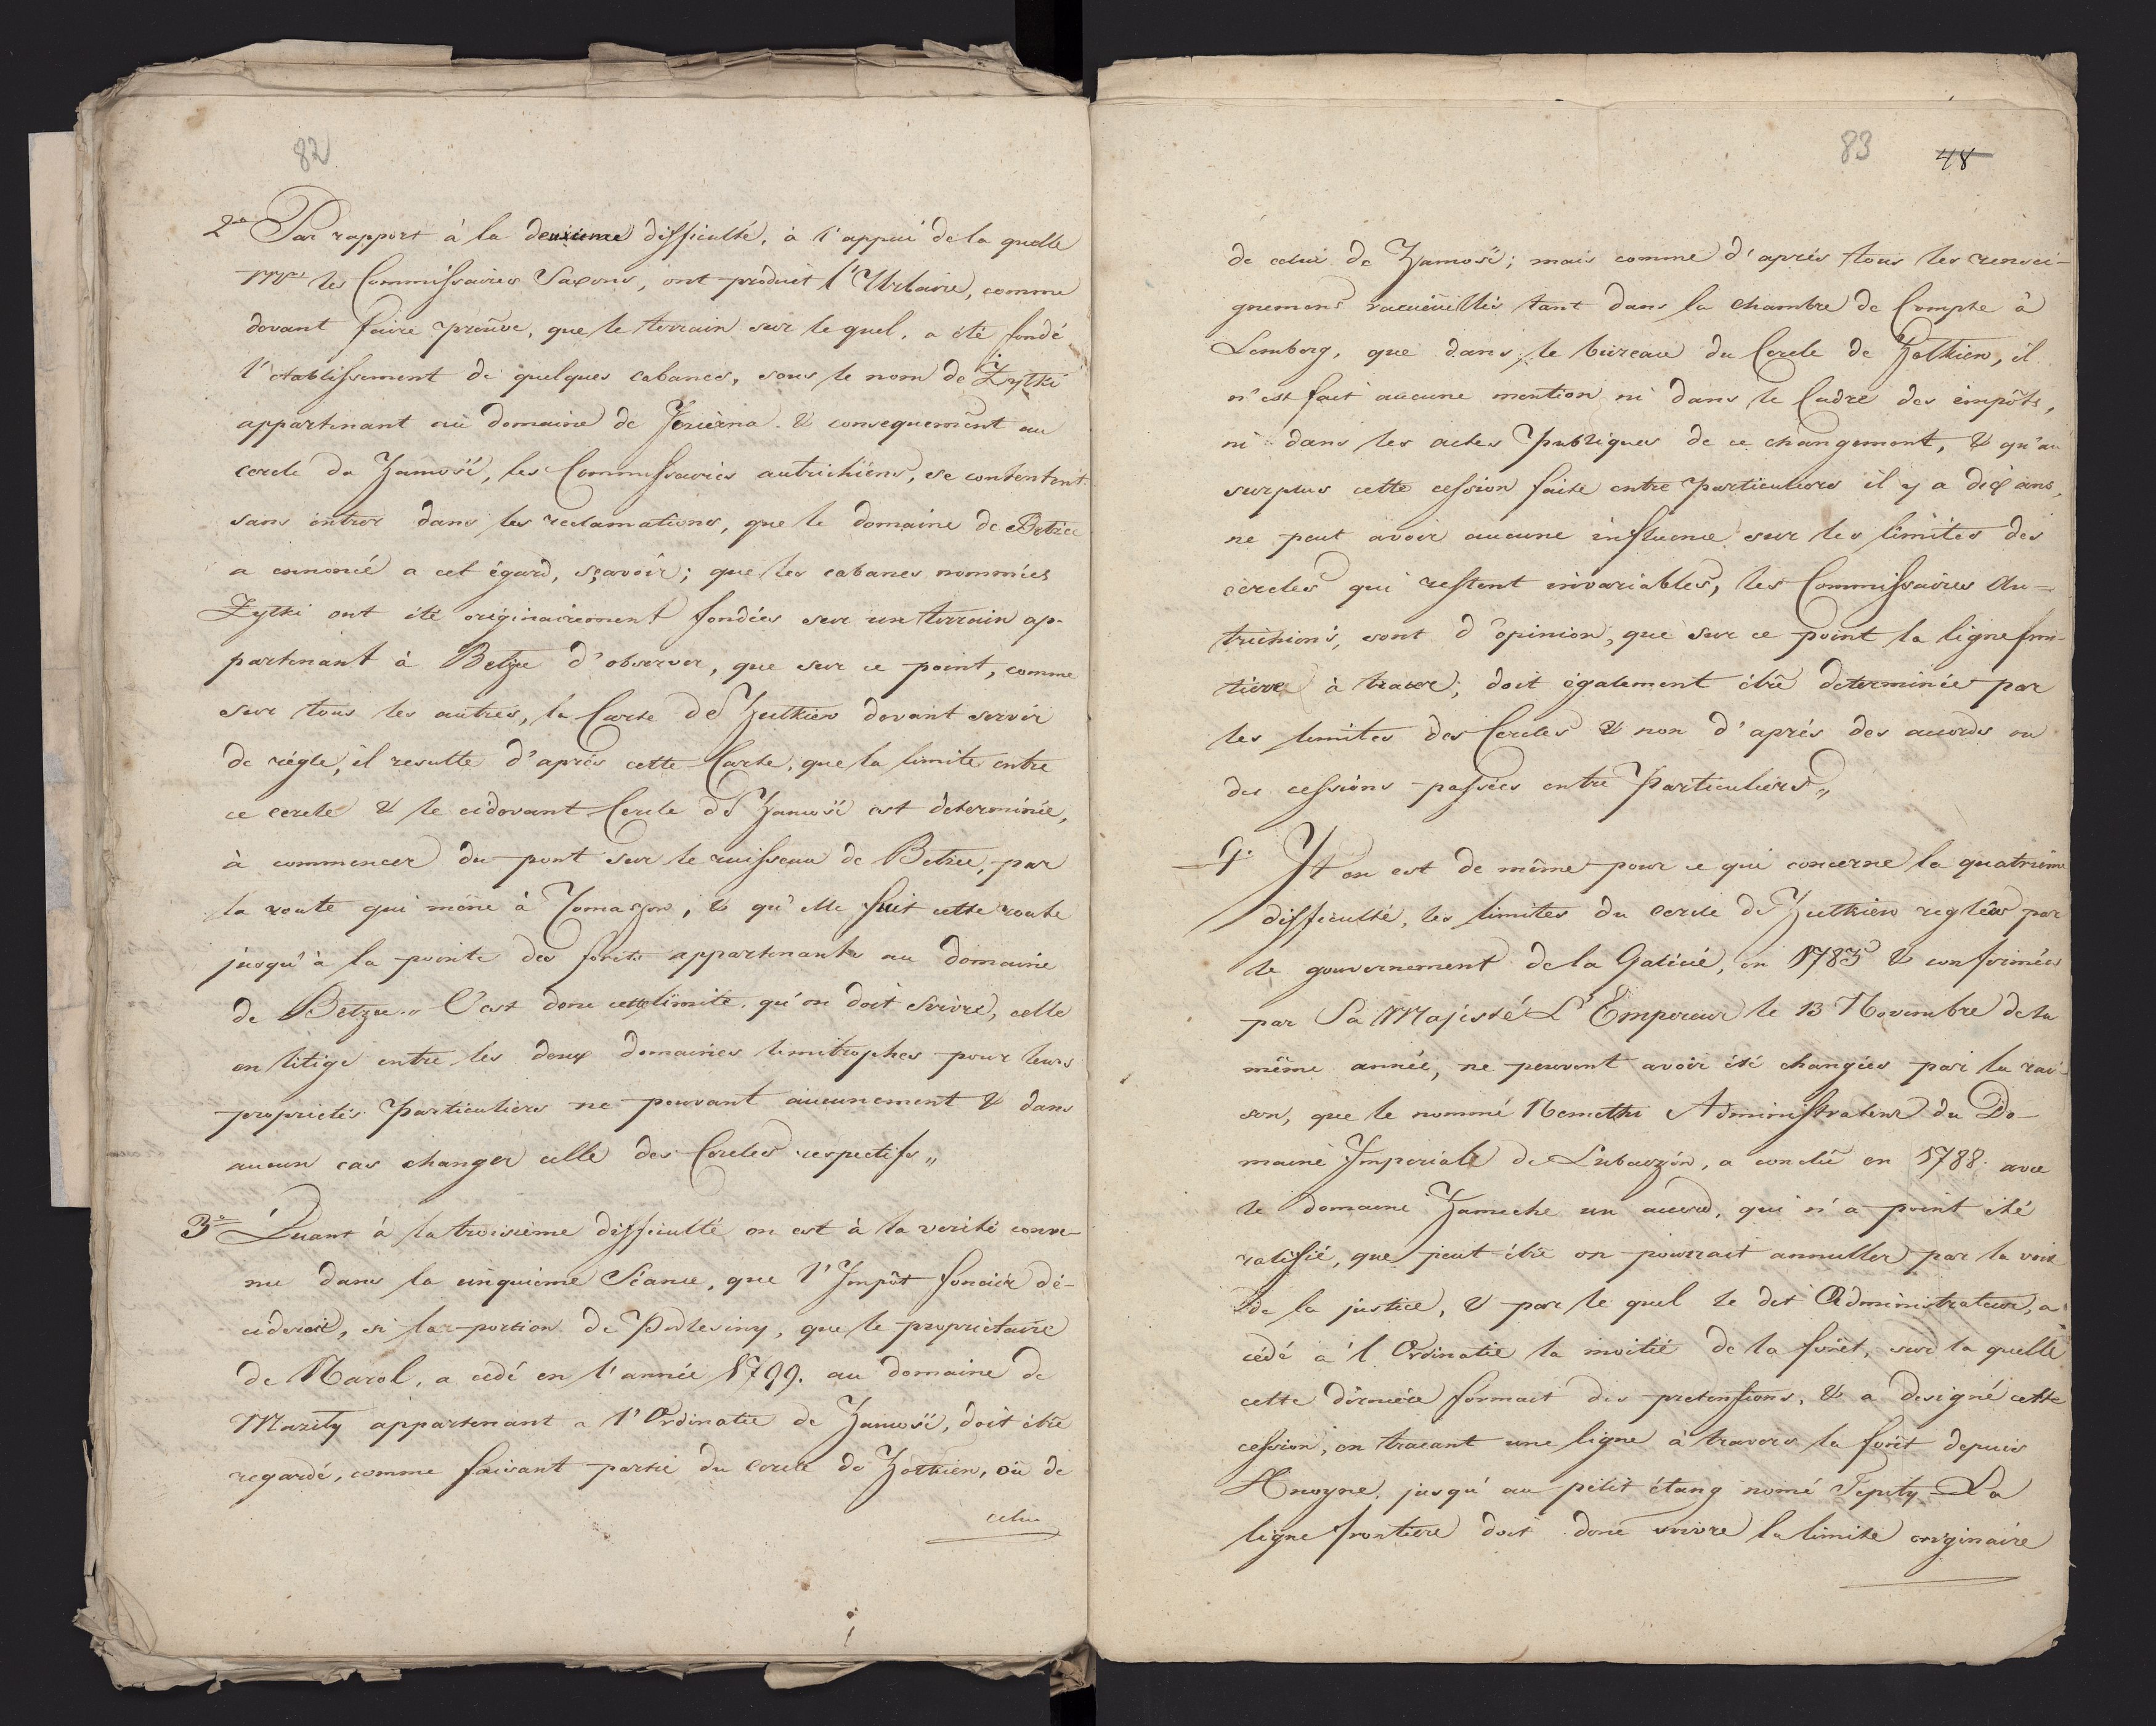 82
2° Par rapport à la deuxieme difficulté, à l'appui de la quelle
MMrs les Commissaires Saxons, ont produit l'Urbaire, comme
devant faire preuve, que le terrain sur le quel, a été fondé
l'etablissement de quelques cabanes, sous le nom de Żytki
appartenant au domaine de Jezierna & consequement au
cercle de Zamość, les Commissaires autrichiens, se contentent
sans entrer dans les reclamations, que le domaine de Betzec
a ennoncé a cet égard, sçavoir; que les cabanes nommées
Zytki ont été originairement fondées sur un terrain ap-
partenant à Betzec d'observer, que sur ce point, comme
sur tous les autres, la Carte de Zułkiew devant servir
de régle, il resulte d'après cette Carte, que la limite entre
ce cercle & le cidevant Cercle de Zamość est determinée,
à commencer du pont sur le ruisseau de Betzec, par
la route qui mène à Tomaszow, & qu'elle suit cette route
jusqu'à la pointe des forêts appartenants au domaine
de Betzec„ C'est donc cette limite, qu'on doit suivre, celle
en litige entre les deux domaines limitrophes pour leurs
proprietés Particulières ne pouvant aucunement & dans
aucun cas changer celle des Cercles respectifs„
3° Quant à la troisième difficulté on est à la verité conve-
nu dans la cinquieme Séance, que l'Impôt foncier dé-
cideroit, si la portion de Podlesiny, que le proprietaire
de Narol, a cedé en l'année 1799. au domaine de
Maziły appartenant a l'Ordinatie de Zamość, doit être
regardé, comme faisant partie du cercle de Żołkiew, où de
celui
83 48
de celui de Zamość; mais comme d'après tous les rensei-
gnemens recueuillis tant dans la chambre de Compte à
Lemberg, que dans le bureau du Cercle de Zolkiew, il
n'est fait aucune mention ni dans le Cadre des impôts,
ni dans les actes Publiques de ce changement, & qu'au
surplus cette cession faite entre Particuliers il y a dix ans,
ne peut avoir aucune influence sur les limites des
cercles qui restent invariables, les Commissaires Au=
trichiens, sont d'opinion, que sur ce point la ligne fron-
tière à tracer, doit également être determinée par
les limites des Cercles & non d'après des accords ou
des cessions passées entre Particuliers„
4. Il en est de même pour ce qui concerne la quatrieme
difficulté, les limites du cercle de Zułkiew reglées par
le gouvernement de la Galicie, en 1783 & confirmées
par Sa Majesté L'Empereur le 13 Novembre de la
même année, ne peuvent avoir été changées par la rai-
son, que le nommé Nemethi Administrateur du Do-
maine Imperiale de Lubaczón, a conclû en 1788 avec
le domaine Zameche un accord, qui n'a point été
ratifié, que peut être on pourrait annuller par la voix
de la justice, & par le quel le dit Administrateur, a
cédé à l'Ordinatie la moitié de la forêt, sur la quelle
cette dernière formait des pretensions, & a designé cette
cession, en tracant une ligne à travers la forêt depuis
Hnoyne, jusqu'au petit étang nomé Tepiły. La
ligne frontiere doit donc suivre la limite originaire